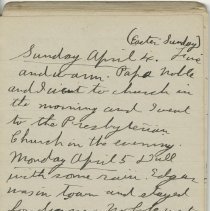 (Easter Sunday)
Sunday April 4. Fine
and warm. Papa Noble
and I went to church in
the morning and I went
to the Presbyterian
Church in the evening.
Monday April 5 Dull
with some rain. Edgar
was in town and stayed
for dinner. Noble